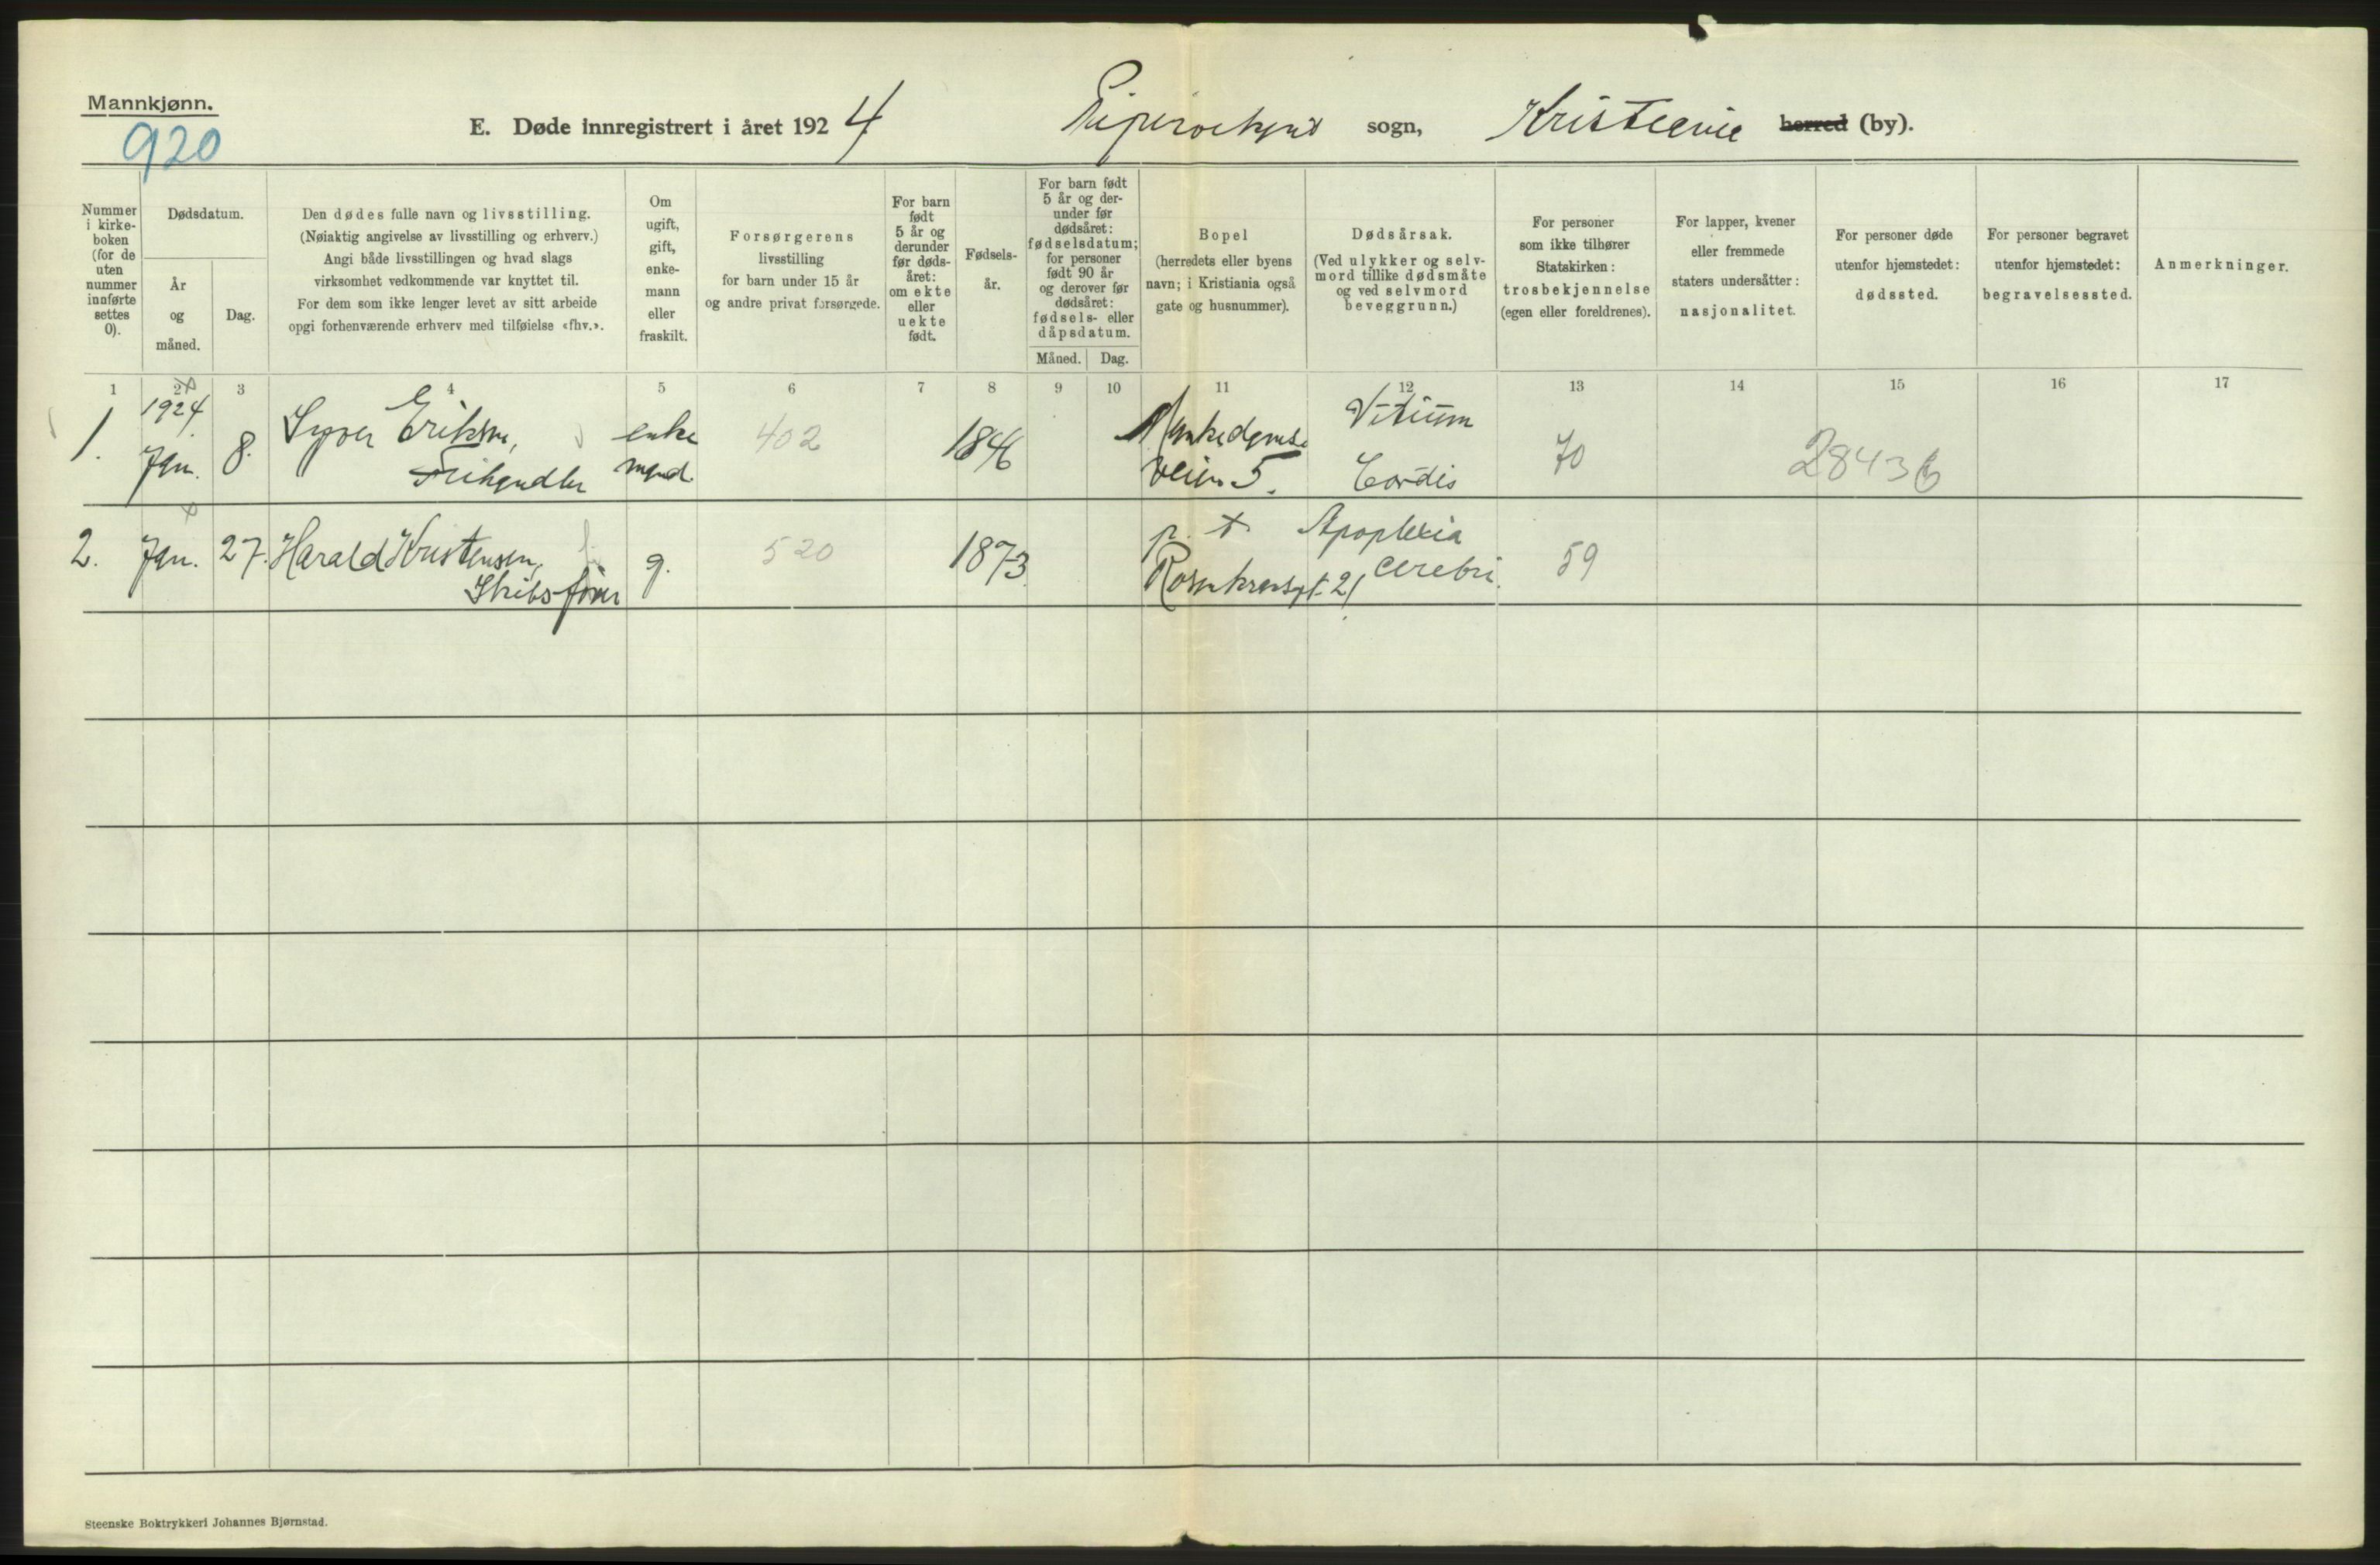 Mannkjønn.
920
E. Døde innregistrert i året 1924 sogn, Kristiania herred (by).
Nummer i kirkeboken (for de uten nummer innførte settes 0).
Dødsdatum.
År og måned.
Dag.
Den dødes fulle navn og livsstilling.
(Nøiaktig angivelse av livsstilling og erhverv.)
Angi både livsstillingen og hvad slags
virksomhet vedkommende var knyttet til.
For dem som ikke lenger levet av sitt arbeide
opgi forhenværende erhverv med tilføielse «fhv.».
Om ugift, gift, enkemann eller fraskilt.
Forsørgerens
livsstilling
for barn under 15 år
og andre privat forsørgede.
For barn født 5 år og derunder før dødsåret: om ekte eller uekte født.
Fødselsår.
For barn født 5 år og derunder før dødsåret: fødselsdatum; for personer født 90 år og derover før dødsåret: fødsels- eller dåpsdatum.
Måned. Dag.
Bopel
(herredets eller byens
navn; i Kristiania også
gate og husnummer).
Dødsårsak.
(Ved ulykker og selvmord tillike dødsmåte og ved selvmord beveggrunn.)
For personer
som ikke tilhører
Statskirken:
trosbekjennelse
(egen eller foreldrenes).
For lapper, kvener
eller fremmede
staters undersåtter:
nasjonalitet.
For personer døde
utenfor hjemstedet:
dødssted.
For personer begravet
utenfor hjemstedet:
begravelsessted.
Anmerkninger.
1 2 3 4 5 6 7 8 9 10 11 12 13 14 15 16 17
1. 1924 Jan. 8. Syver Eriksen, enke 402 1846 Munkedams- Vitium 70 28436
Frihandler mand. veien 5. Cordis
2. Jan. 27. Harald Kristensen, g. 520 1873 p. t. Apoplexia 59
Skibsfører Rosenkransgt. 21 cerebri.
Steenske Boktrykkeri Johannes Bjørnstad.